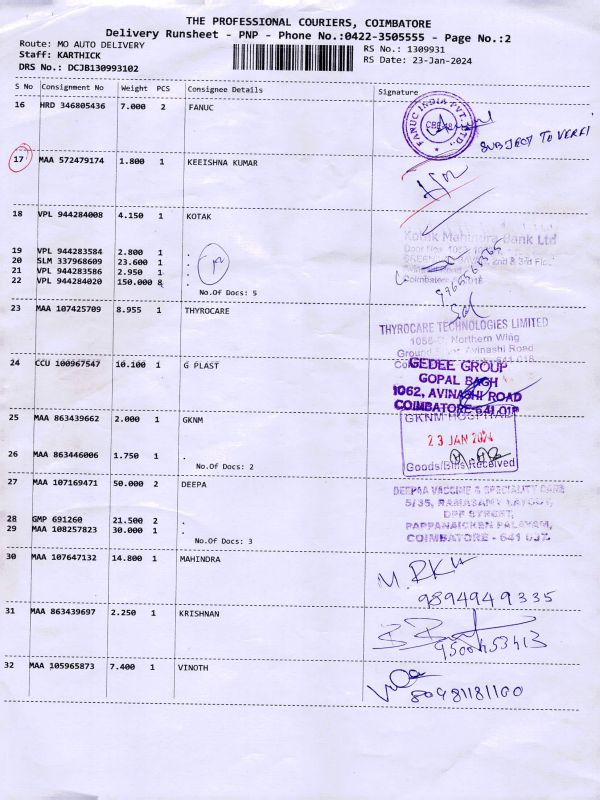 THE PROFESSIONAL COURIERS, COIMBATORE
Delivery Runsheet - PNP - Phone No.:0422-3505555 - Page No.:2
Route: MO AUTO DELIVERY
RS No.: 1309931
Staff: KARTHICK
RS Date: 23-Jan-2024
DRS No.: DCJB130993102
S No Consignment No Weight PCS Consignee Details Signature
16 HRD 346805436 7.000 2 FANUC
FANUC INDIA PVT. LTD.
SUBJECT TO VERFI
17 MAA 572479174 1.800 1 KEEISHNA KUMAR
18 VPL 944284008 4.150 1 KOTAK
Kotak Mahindra Bank Ltd
2nd & 3rd
19 VPL 944283584 2.800 1 .
20 SLM 337968609 23.600 1 .
21 VPL 944283586 2.950 1 .
22 VPL 944284020 150.000 8 .
No.Of Docs: 5
23 MAA 107425709 8.955 1 THYROCARE
THYROCARE TECHNOLOGIES LIMITED
Northern Wing
Avinashi Road
24 CCU 100967547 10.100 1 G PLAST
GEDEE GROUP
GOPAL BAGH
1062, AVINASHI ROAD
COIMBATORE-641 018
25 MAA 863439662 2.000 1 GKNM
GKNM HOSPITAL
23 JAN 2024
26 MAA 863446006 1.750 1 .
Goods/Bills Received
No.Of Docs: 2
27 MAA 107169471 50.000 2 DEEPA
DEEPAA VACCINE & SPECIALITY CARE
5/35, RAMASAMY LAYOUT,
STREET,
28 GMP 691260 21.500 2 .
PAPPANAICKEN PALAYAM,
29 MAA 108257823 30.000 1 .
COIMBATORE - 641 037.
No.Of Docs: 3
30 MAA 107647132 14.800 1 MAHINDRA
9894949335
31 MAA 863439697 2.250 1 KRISHNAN
9500453413
32 MAA 105965873 7.400 1 VINOTH
8098181100